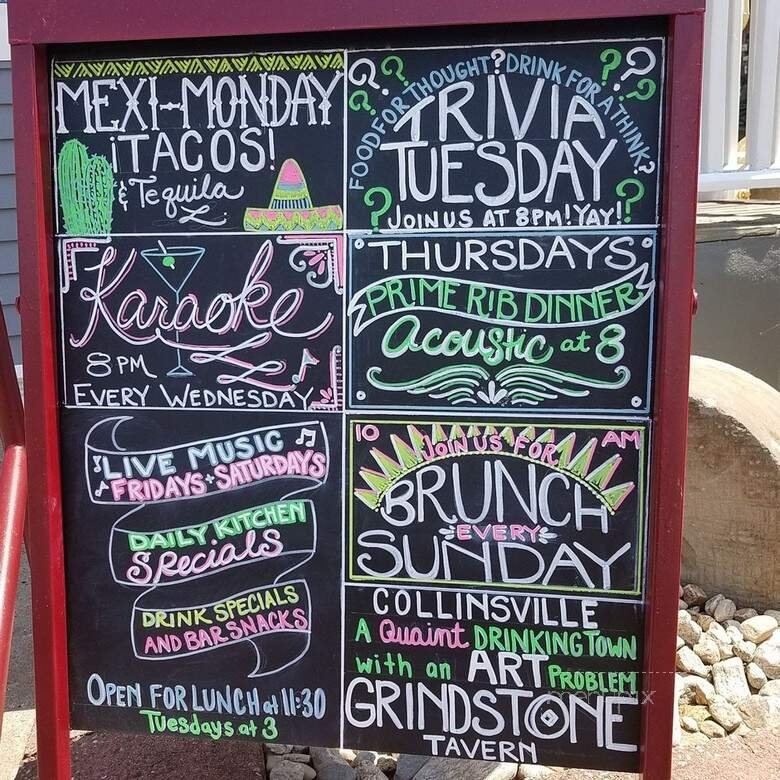 MEXI-MONDAY
¡TACOS!
& Tequila
FOOD FOR THOUGHT? DRINK FOR A THINK?
TRIVIA
TUESDAY
JOIN US AT 8PM! YAY!
Karaoke
8 PM
EVERY WEDNESDAY
THURSDAYS
PRIME RIB DINNER
Acoustic at 8
LIVE MUSIC
FRIDAYS + SATURDAYS
DAILY KITCHEN
SPecials
DRINK SPECIALS
AND BAR SNACKS
OPEN FOR LUNCH at 11:30
Tuesdays at 3
10 AM
JOIN US FOR
BRUNCH
EVERY
SUNDAY
COLLINSVILLE
A Quaint DRINKING TOWN
with an ART PROBLEM
GRINDSTONE
TAVERN